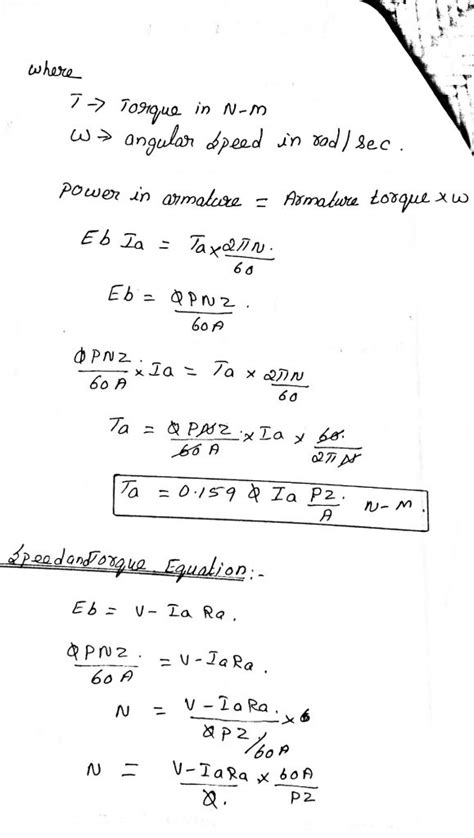 where
T → Torque in N-m
ω → angular speed in rad/sec.
Power in armature = Armature torque × ω
Eb Ia = Ta × 2πN. / 60
Eb = ϕPNZ. / 60A
ϕPNZ / 60A × Ia = Ta × 2πN / 60
Ta = ϕPNZ / 60A × Ia × 60. / 2πN
Ta = 0.159 ϕ Ia PZ. / A N-M.
Speed and Torque Equation:-
Eb = V - Ia Ra.
ϕPNZ / 60A = V - IaRa.
N = V - IaRa. / ϕPZ/60A × 6
N = V - IaRa / ϕ. × 60A / PZ